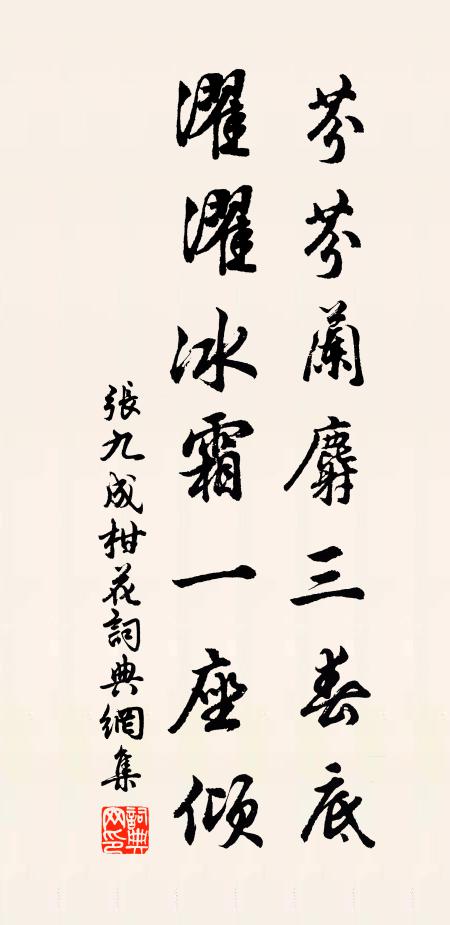 芬芬蘭麝三春底
濯濯冰霜一座傾
張九成柑花詞典網集
詞典網印